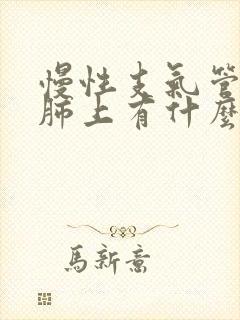 慢性支氣管
肺上有什麼
馬新意